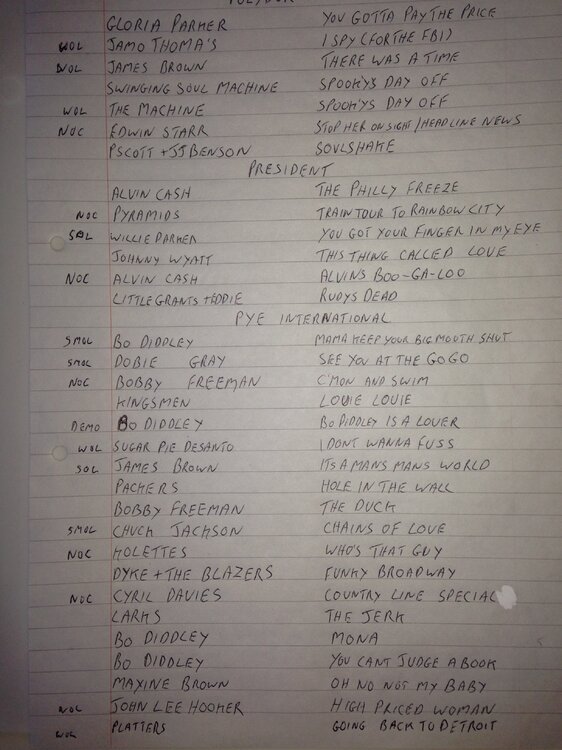 GLORIA PARKER YOU GOTTA PAY THE PRICE
WOL JAMO THOMA'S I SPY (FOR THE FBI)
WOL JAMES BROWN THERE WAS A TIME
SWINGING SOUL MACHINE SPOOKYS DAY OFF
WOL THE MACHINE SPOOKYS DAY OFF
NOC EDWIN STARR STOP HER ON SIGHT / HEADLINE NEWS
PSCOTT + JJ BENSON SOULSHAKE
PRESIDENT
ALVIN CASH THE PHILLY FREEZE
NOC PYRAMIDS TRAIN TOUR TO RAINBOW CITY
SOL WILLIE PARKER YOU GOT YOUR FINGER IN MY EYE
JOHNNY WYATT THIS THING CALLED LOVE
NOC ALVIN CASH ALVINS BOO-GA-LOO
LITTLE GRANTS + EDDIE RUDYS DEAD
PYE INTERNATIONAL
SMOL BO DIDDLEY MAMA KEEP YOUR BIG MOUTH SHUT
SMOL DOBIE GRAY SEE YOU AT THE GO GO
NOC BOBBY FREEMAN C'MON AND SWIM
KINGSMEN LOUIE LOUIE
DEMO BO DIDDLEY BO DIDDLEY IS A LOVER
WOL SUGAR PIE DESANTO I DONT WANNA FUSS
SOL JAMES BROWN ITS A MANS MANS WORLD
PACKERS HOLE IN THE WALL
BOBBY FREEMAN THE DUCK
SMOL CHUCK JACKSON CHAINS OF LOVE
NOC KOLETTES WHO'S THAT GUY
DYKE + THE BLAZERS FUNKY BROADWAY
NOC CYRIL DAVIES COUNTRY LINE SPECIAL
LARKS THE JERK
BO DIDDLEY MONA
BO DIDDLEY YOU CANT JUDGE A BOOK
MAXINE BROWN OH NO NOT MY BABY
NOC JOHN LEE HOOKER HIGH PRICED WOMAN
WOL PLATTERS GOING BACK TO DETROIT